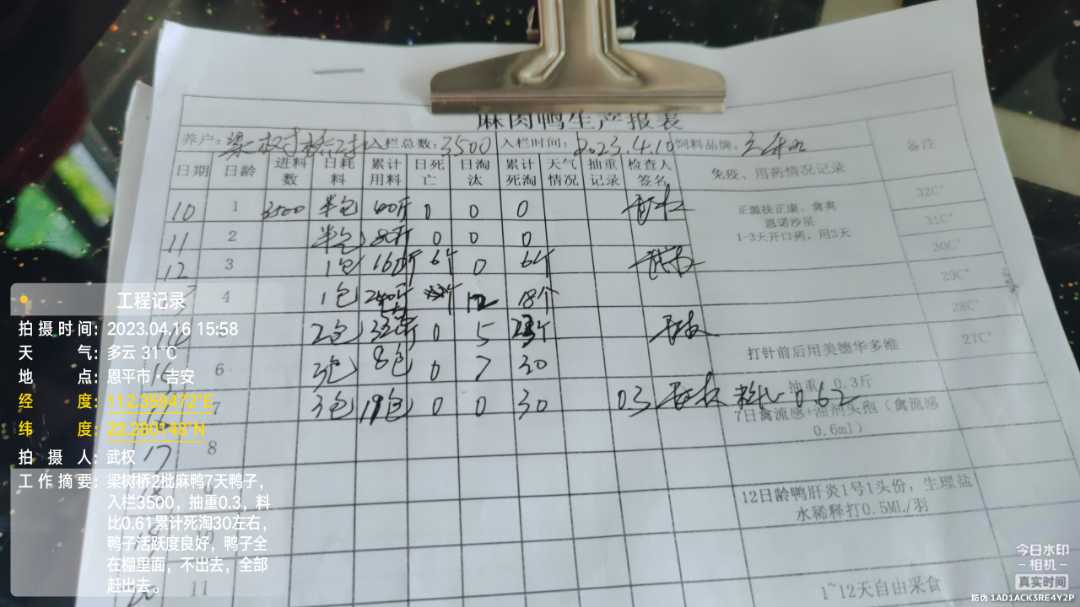 麻肉鸭生产报表
养户：梁树桥2批 入栏总数：3500 入栏时间：2023.4.10 饲料品牌：
日期 日龄 进料数 日耗料 累计用料 日死亡 日淘汰 累计死淘 天气情况 抽重记录 检查人签名 免疫、用药情况记录 备注
10 1 3500 半包 40斤 0 0 0 32C°
正菌扶正康、禽爽
恩诺沙星
1-3天开口药，用3天
11 2 半包 80斤 0 0 0 31C°
12 3 1包 160斤 6个 0 6个 30C°
4 1包 240斤 12 18个 29C°
2包 0 5 23个 28C°
打针前后用美德华多维 27C°
6 3包 8包 0 7 30
抽重：0.3斤
7 3包 11包 0 0 30 03 料比0.62
7日禽流感+油剂头孢（禽流感
0.6ml）
17 8
12日龄鸭肝炎1号1头份，生理盐
水稀释打0.5ML/羽
11 1~12天自由采食
工程记录
拍摄时间：2023.04.16 15:58
天气：多云 31℃
地点：恩平市·吉安
经度：112.358472°E
纬度：22.280148°N
拍摄人：武权
工作摘要：梁树桥2批麻鸭7天鸭子，
入栏3500，抽重0.3，料
比0.61累计死淘30左右，
鸭子活跃度良好，鸭子全
在棚里面，不出去，全部
赶出去。
今日水印
-相机-
真实时间
防伪 1AD1ACK3RE4Y2P